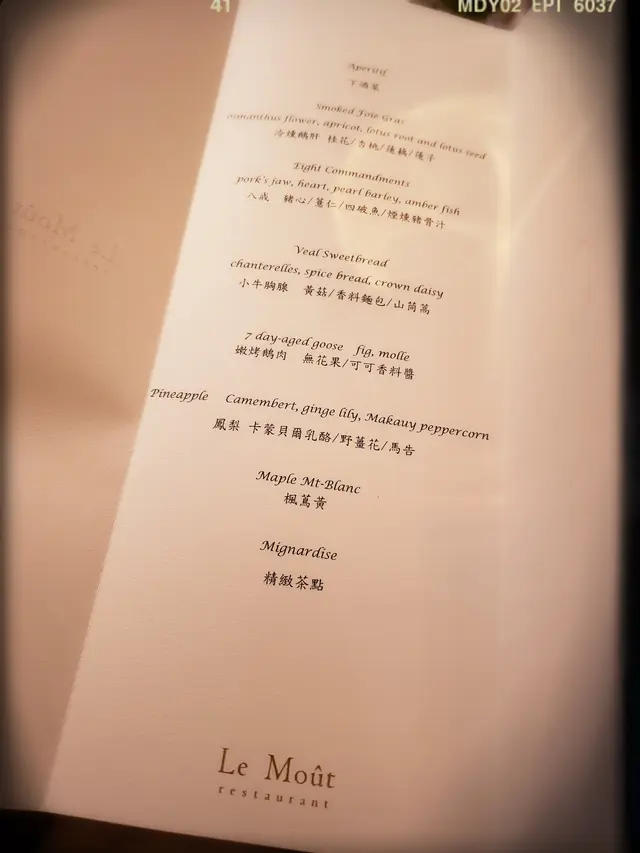 41
MDY02 EPT 6037
Aperitif
下酒菜
Smoked Foie Gras
osmanthus flower, apricot, lotus root and lotus seed
冷燻鵝肝 桂花/杏桃/蓮藕/蓮子
Eight Commandments
pork's jaw, heart, pearl barley, amber fish
八戒 豬心/薏仁/四破魚/煙燻豬骨汁
Veal Sweetbread
chanterelles, spice bread, crown daisy
小牛胸腺 黃菇/香料麵包/山茼蒿
7 day-aged goose fig, molle
嫩烤鵝肉 無花果/可可香料醬
Pineapple Camembert, ginge lily, Makauy peppercorn
鳳梨 卡蒙貝爾乳酪/野薑花/馬告
Maple Mt-Blanc
楓蔦黃
Mignardise
精緻茶點
Le Moût
restaurant